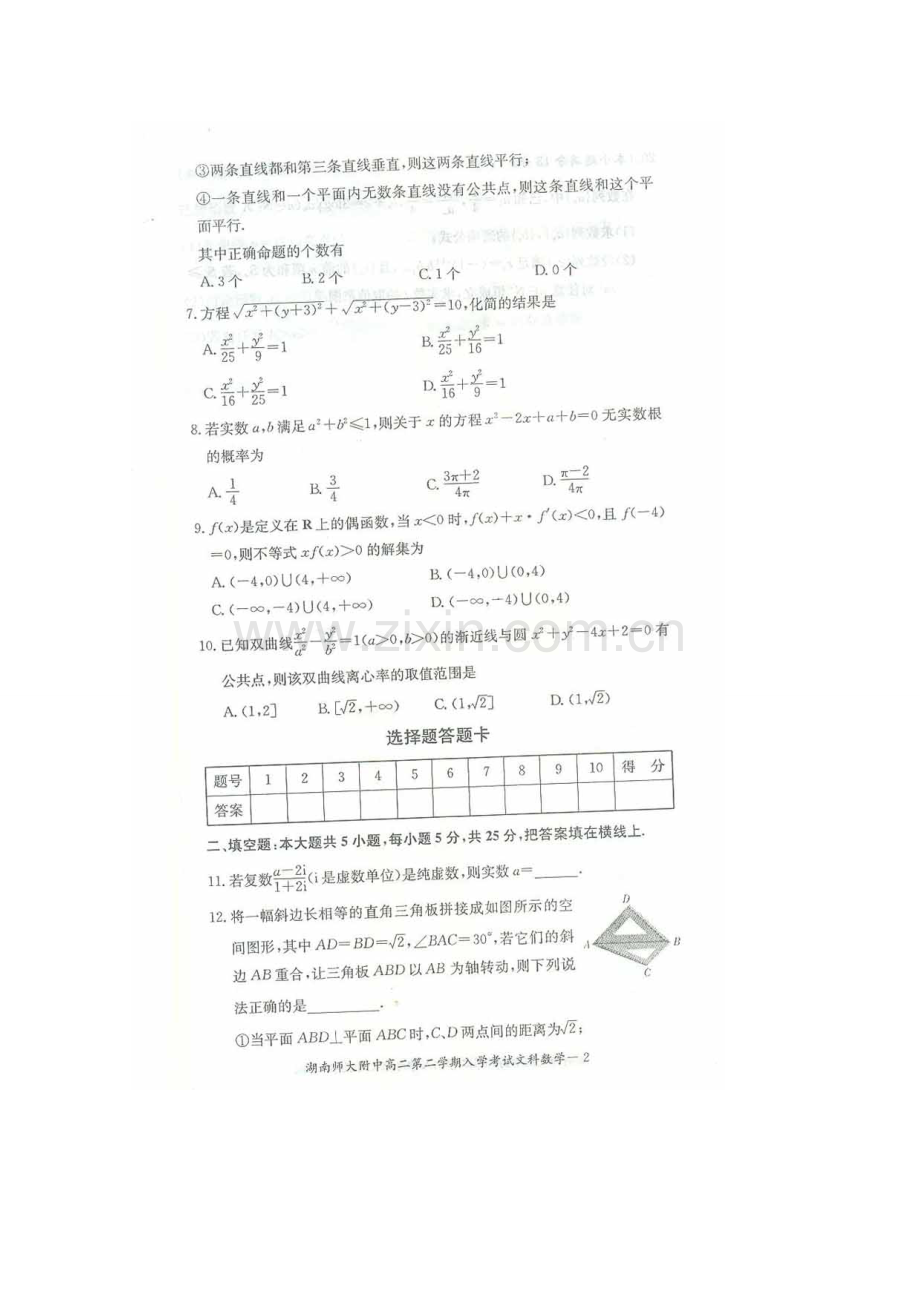 ③两条直线都和第三条直线垂直,则这两条直线平行;
④一条直线和一个平面内无数条直线没有公共点,则这条直线和这个平
面平行.
其中正确命题的个数有
A. 3个 B. 2个 C. 1个 D. 0个
7. 方程√(x²+(y+3)²)+√(x²+(y-3)²)=10,化简的结果是
A. x²/25+y²/9=1 B. x²/25+y²/16=1
C. x²/16+y²/25=1 D. x²/16+y²/9=1
8. 若实数a,b满足a²+b²≤1,则关于x的方程x²-2x+a+b=0无实数根
的概率为
A. 1/4 B. 3/4 C. (3π+2)/4π D. (π-2)/4π
9. f(x)是定义在R上的偶函数,当x<0时,f(x)+x·f′(x)<0,且f(-4)
=0,则不等式xf(x)>0的解集为
A. (-4,0)∪(4,+∞) B. (-4,0)∪(0,4)
C. (-∞,-4)∪(4,+∞) D. (-∞,-4)∪(0,4)
www.zixin.com.cn
10. 已知双曲线x²/a²-y²/b²=1(a>0,b>0)的渐近线与圆x²+y²-4x+2=0有
公共点,则该双曲线离心率的取值范围是
A. (1,2] B. [√2,+∞) C. (1,√2] D. (1,√2)
选择题答题卡
题号 1 2 3 4 5 6 7 8 9 10 得 分
答案
二、填空题:本大题共5小题,每小题5分,共25分,把答案填在横线上.
11. 若复数(a-2i)/(1+2i)(i是虚数单位)是纯虚数,则实数a=_____.
12. 将一幅斜边长相等的直角三角板拼接成如图所示的空
间图形,其中AD=BD=√2,∠BAC=30°,若它们的斜
边AB重合,让三角板ABD以AB为轴转动,则下列说
法正确的是________.
D
A
B
C
①当平面ABD⊥平面ABC时,C、D两点间的距离为√2;
湖南师大附中高二第二学期入学考试文科数学—2